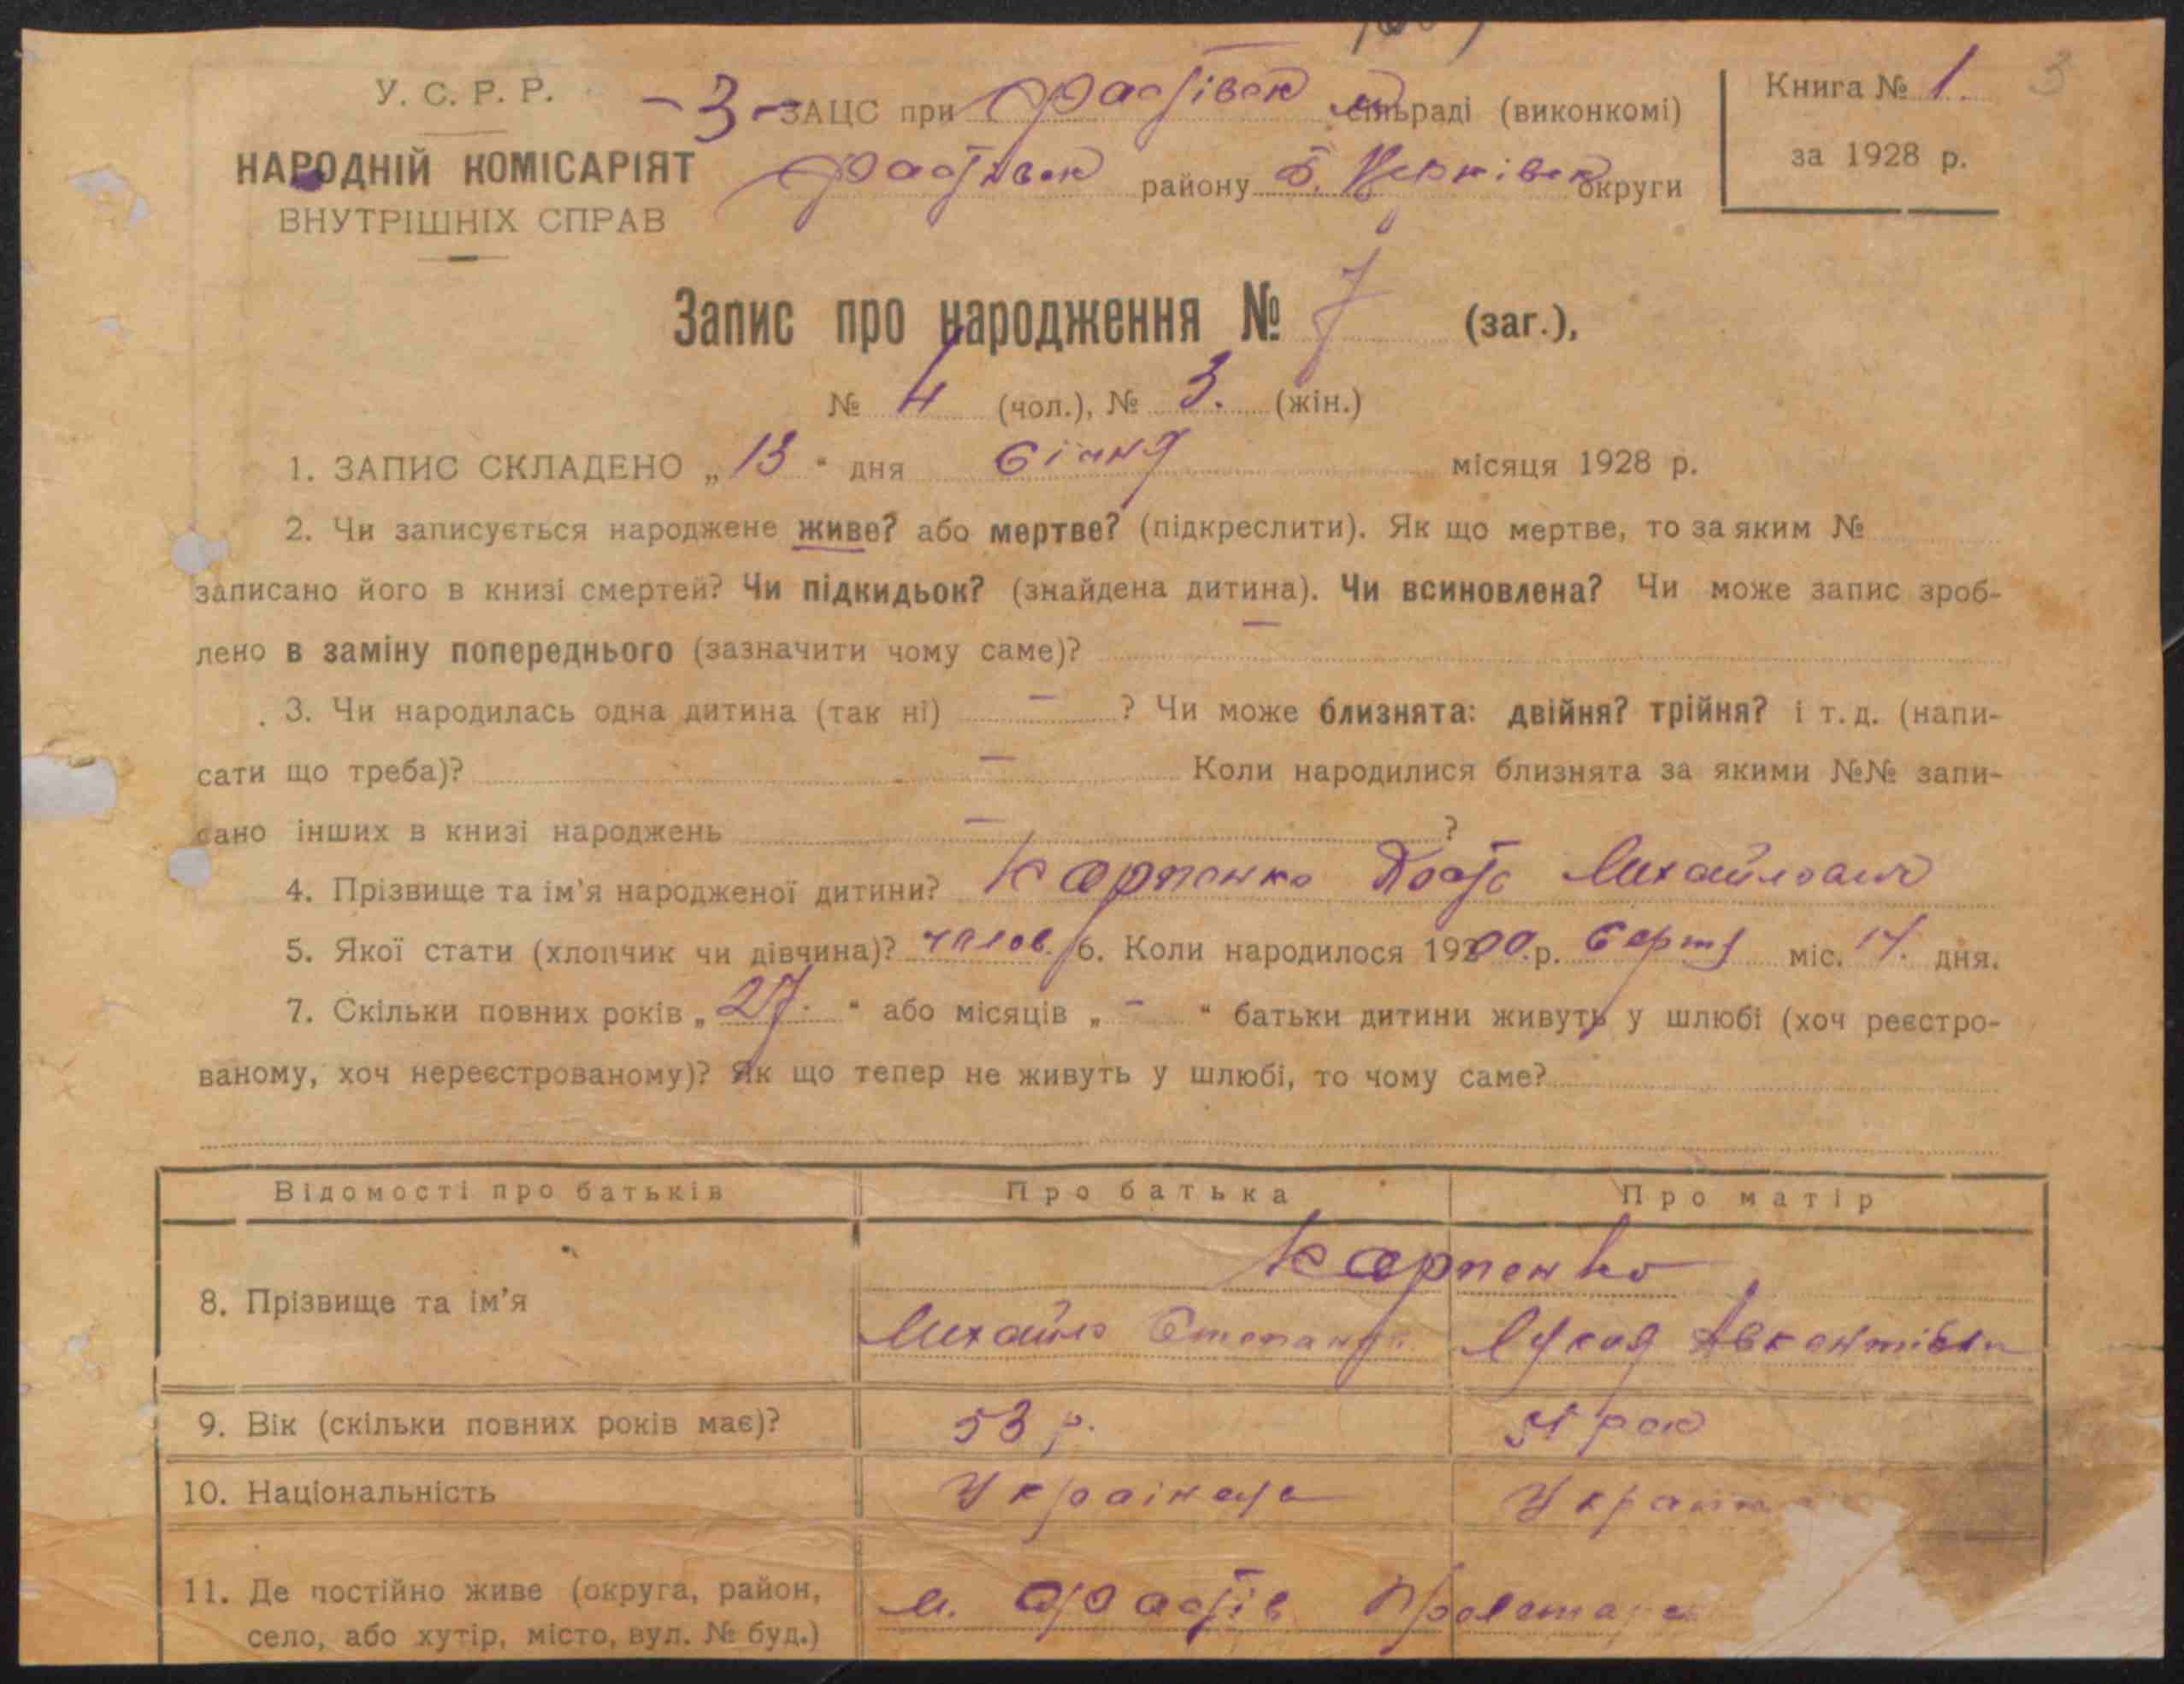 У. С. Р. Р.
НАРОДНІЙ КОМІСАРІЯТ
ВНУТРІШНІХ СПРАВ
-3- ЗАЦС при Фастівск сільраді (виконкомі)
Фастівск району Б. Церківск округи
Книга № 1. 3
за 1928 р.
Запис про народження № 7 (заг.),
№ 4 (чол.), № 3. (жін.)
1. ЗАПИС СКЛАДЕНО „13“ дня Січня місяця 1928 р.
2. Чи записується народжене живе? або мертве? (підкреслити). Як що мертве, то за яким №
записано його в книзі смертей? Чи підкидьок? (знайдена дитина). Чи всиновлена? Чи може запис зроб-
лено в заміну попереднього (зазначити чому саме)? —
3. Чи народилась одна дитина (так ні) — ? Чи може близнята: двійня? трійня? і т. д. (напи-
сати що треба)? — Коли народилися близнята за якими №№ запи-
сано інших в книзі народжень — ?
4. Прізвище та ім’я народженої дитини? Карпенко Михайлович
5. Якої стати (хлопчик чи дівчина)? чолов. 6. Коли народилося 1900.р. Серпня міс. 14. дня.
7. Скільки повних років „27.“ або місяців „-“ батьки дитини живуть у шлюбі (хоч реєстро-
ваному, хоч нереєстрованому)? Як що тепер не живуть у шлюбі, то чому саме?
Відомості про батьків Про батька Про матір
8. Прізвище та ім’я Карпенко
Михайло Степан. Авксентівна
9. Вік (скільки повних років має)? 53 р. рок
10. Національність Українець Україн
11. Де постійно живе (округа, район,
село, або хутір, місто, вул. № буд.)
м. Фастів Пролетар